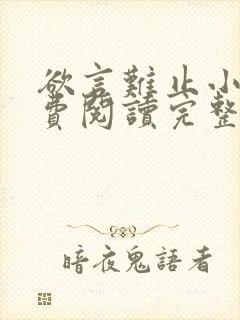 欲言難止小
費閱讀完整
暗夜鬼語者